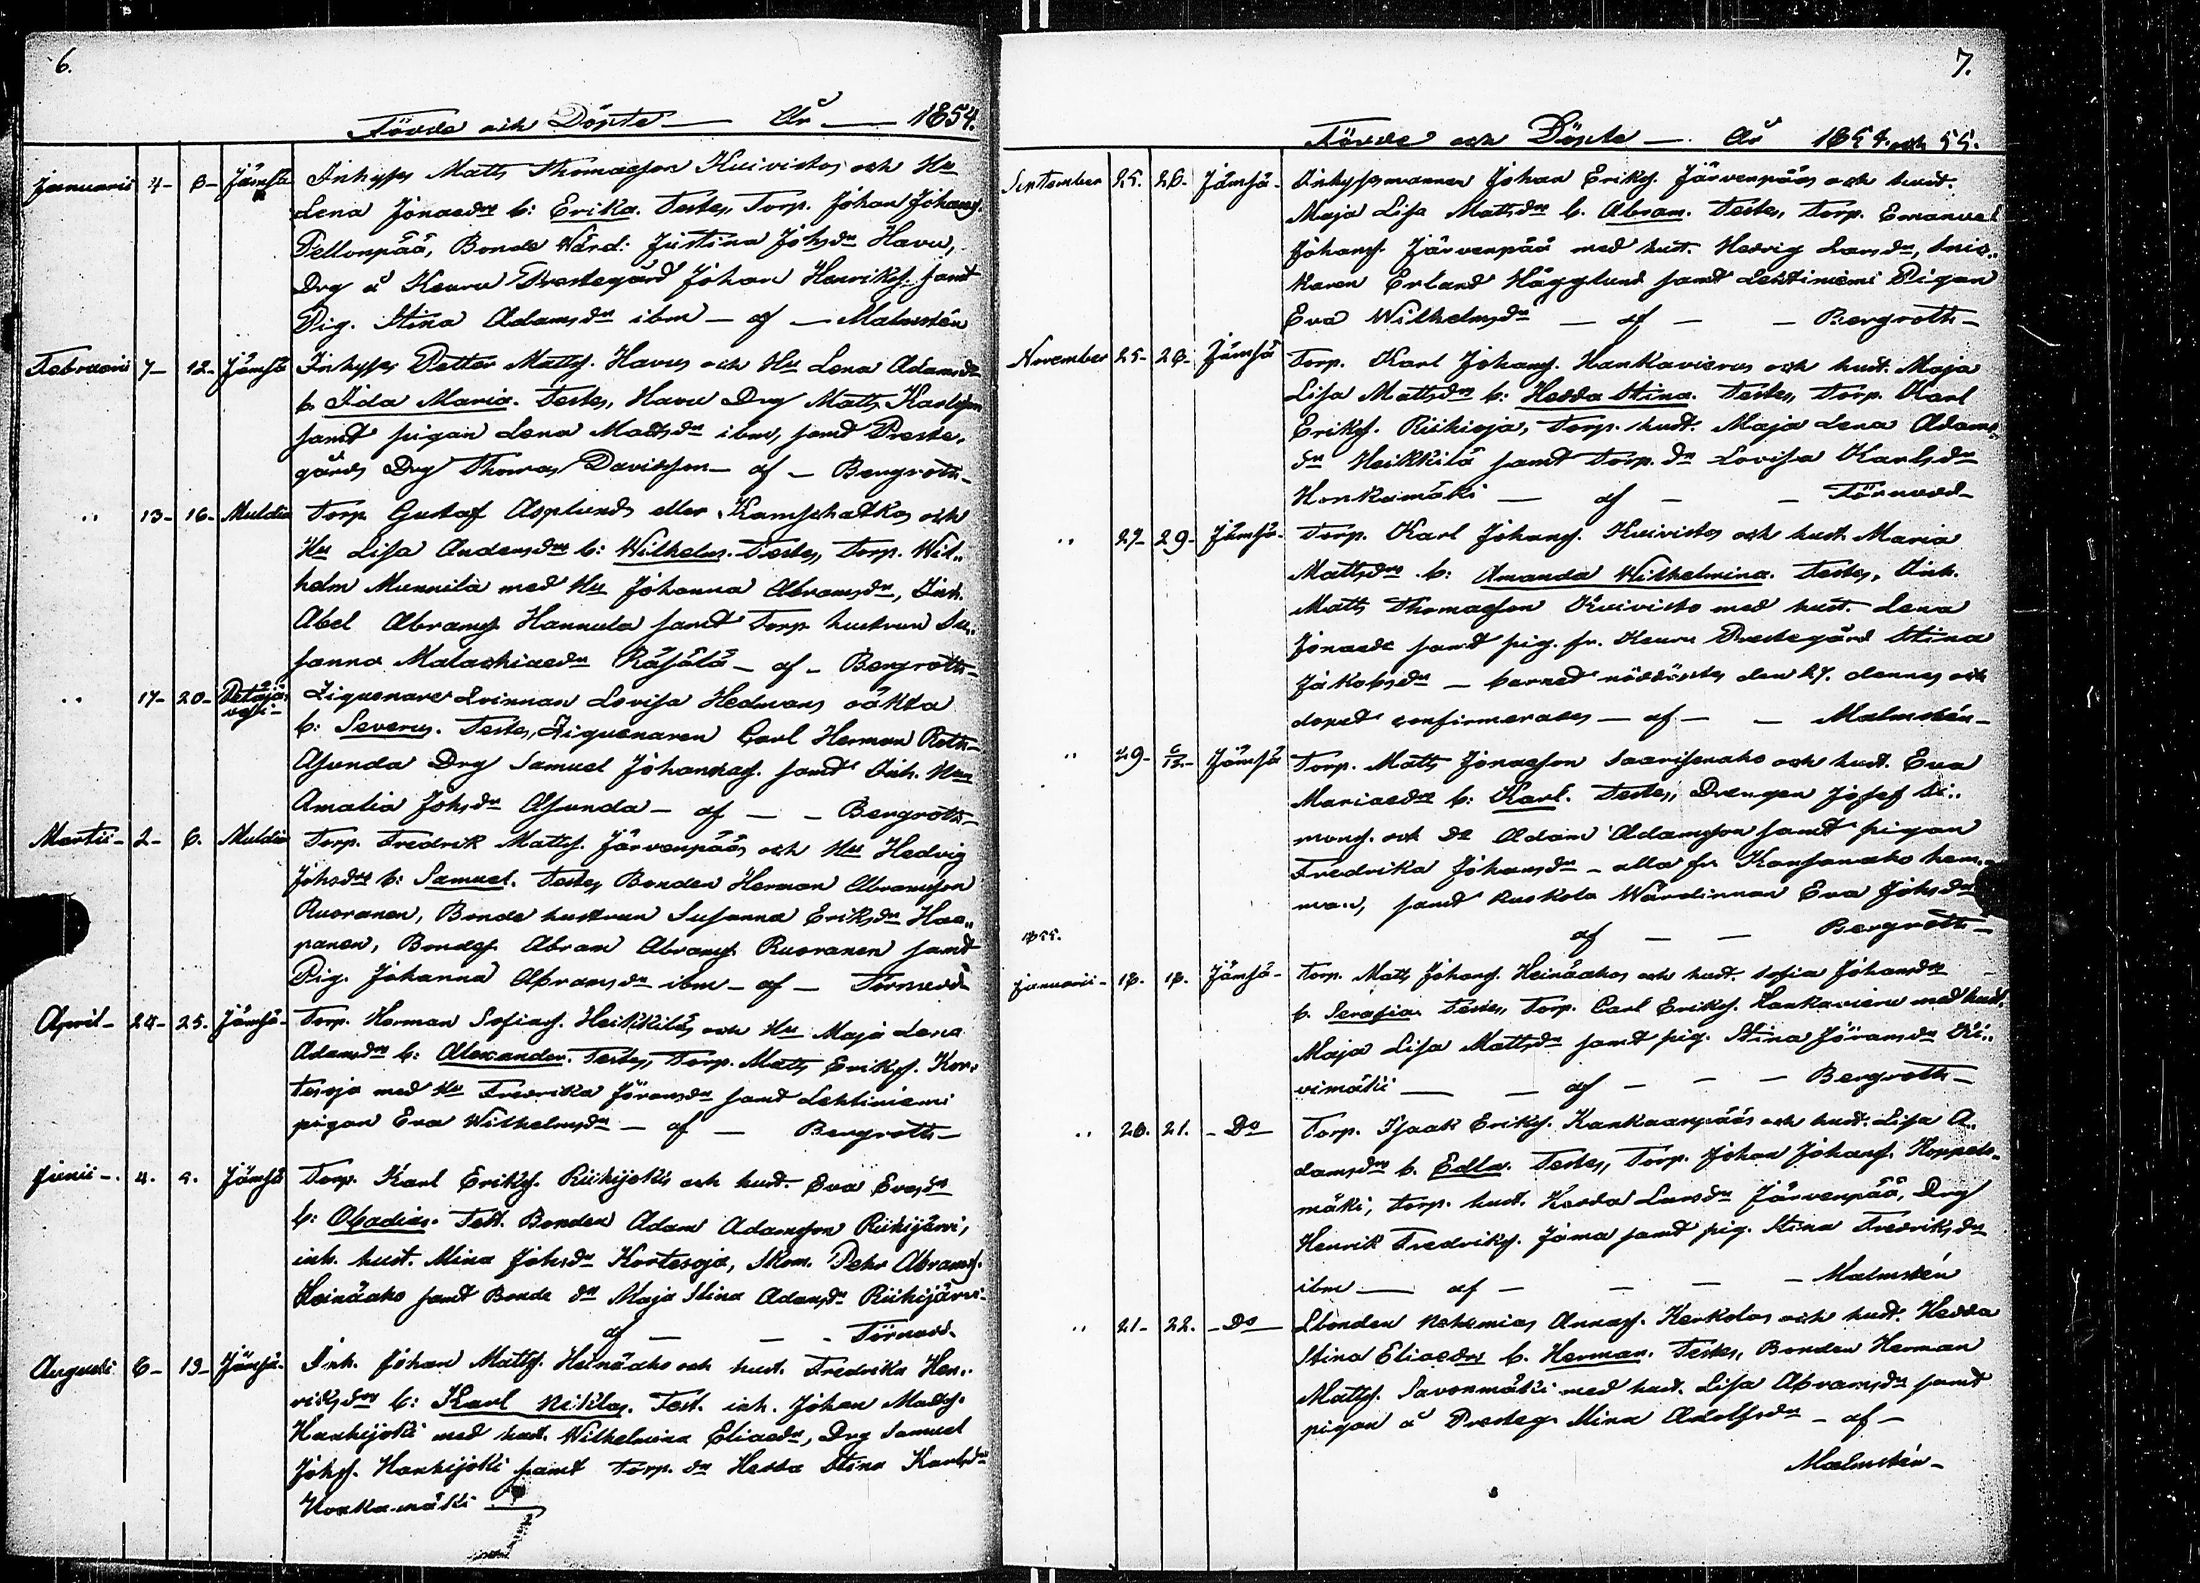 6.
Födde och Döpte — År — 1854.
Januarii 4- 8- Jämsä Inhyses Matts Thomasson Kuivistos och Hu
Lena Jonaedr b: Erika. Testes, Torp. Johan Johans.
Pellonpää, Bonde Värd: Justina Johsdr Havu,
Drg å Keuru Prestegård Johan Henriks. samt
Pig. Stina Adamsdr ibm — af — Malmstén
Februarii 7- 12- Jämsä Inhyses Petter Matts. Havus och Hu Lena Adamsdr
b. Ida Maria. Testes, Havu Drg Matts Karlsson
samt pigan Lena Mattsdr ibm, samt Preste,
gårds Drg Thomas Davidsson — af — Bergroth-
" 13- 16- Muldia Torp. Gustaf Asplunds eller Kamschatkas och
Hu Lisa Andersdrs b: Wilhelm. Testes, Torp. Wil,,
helm Munnila med Hu Johanna Abramsdr, Inh.
Abel Abrams. Hannula samt Torp. hustrun Su,,
sanna Malachiaedr Räsälä — af — Bergroth-
" 17- 20- Petäjävesi- Ziguenare Qvinnan Lovisa Hedmans oäkta
b: Severus. Testes, Ziguenaren Carl Herman Roth-
Asunda Drg Samuel Johannas. samt Inh. Hun
Amalia Johsdr Asunda — af — — Bergroth-
Martii- 2- 6. Muldia Torp. Fredrik Matts. Järvenpääs och Hu Hedvig
Johsdrs b: Samuel. Testes Bonden Herman Abramsson
Ruoranen, Bonde hustrun Susanna Eriksdr Haa,,
panen, Bondes. Abram Abrams. Ruoranen samt
Pig. Johanna Abramsdr ibm — af — Törnudd-
April- 24- 25. Jämsä- Torp. Herman Sofias. Heikkiläs och Hu Maja Lena
Adamsdrs b: Alexander. Testes, Torp. Matts Eriks. Kor,
tesoja med Hu Fredrika Jöransdr samt Lehtiniemi
pigan Eva Wilhelmsdr — af — Bergroth-
Junii-. 4. 9. Jämsä Torp. Karl Eriks. Riihijokis och hust. Eva Evasdr
b: Obadias. Test. Bonden Adam Adamsson Riihijärvi,
inh. hust. Mina Johsdr Kortesoja, Skom. Pehr Abrams.
Heinäaho samt Bonde dr Maja Stina Adamsdr Riihijärvi-
af — — - Törnudd.
Augusti 6- 13- Jämsä- Inh. Johan Matts. Heinäaho och hust. Fredrika Hen,,
riksdrs b: Karl Niklas. Test. inh. Johan Matts.
Hankijoki med hust. Wilhelmina Eliaedr, Drg Samuel
Johs. Hankijoki samt Torp. dr Hedda Stina Karlsdr
Honkamäki
7.
Födde och Döpte — År 1854 och 55.
September 25. 26. Jämsä- Inhysesmannen Johan Eriks. Järvenpääs och hust.
Maja Lisa Mattsdrs b. Abram. Testes, Torp. Emanuel
Johans. Järvenpää med hust. Hedvig Larsdr, Snic,,
karen Erland Hägglund samt Lehtiniemi Pigan
Eva Wilhelmsdr — af — — Bergroth-
November 25- 26- Jämsä Torp. Karl Johans. Hankavierus och hust. Maja
Lisa Mattsdrs b: Hedda Stina. Testes, Torp. Karl
Eriks. Riihioja, Torp. hust. Maja Lena Adams,
dr Heikkilä samt Torp. dr Lovisa Karlsdr
Honkamäki — af — — Törnudd-
" 27- 29- Jämsä- Torp. Karl Johans. Kuivistos och hust. Maria
Mattsdrs b: Amanda Wilhelmina. Testes, Inh.
Matts Thomasson Kuivisto med hust. Lena
Jonaedr samt pig. fr. Keuru Prestegård Stina
Jakobsdr — barnet nöddöptes den 27. dennes och
dopet confirmerades — af — — Malmstén-
" 29- 6/12- Jämsä Torp. Matts Jonasson Saarisenaho och hust. Eva
Mariaedrs b: Karl. Testes, Drengen Josef Si,,
mons. och do Adam Adamsson samt pigan
Fredrika Johansdr — alla fr. Kansanaho hem,,
man, samt Ruskola Wärdinnan Eva Johsdr
af — — Bergroth-
1855.
Januarii- 18. 18. Jämsä- Torp. Matts Johans. Heinäahos och hust. Sofia Johansdrs
b. Serafia. Testes, Torp. Carl Eriks. Hankavieru med hust.
Maja Lisa Mattsdr samt pig. Stina Jöransdr Ki,,
vimäki — — af — — — Bergroth-
" 20. 21. - Do Torp. Isaak Eriks. Kankaanpääs och hust. Lisa A,,
damsdrs b. Edla. Testes, Torp. Johan Johans. Koppelo,,
mäki, Torp. hust. Hedda Larsdr Järvenpää, Drg
Henrik Fredriks. Joma samt pig. Stina Fredriksdr
ibm — af — — — Malmstén
" 21- 22. - Do Lbonden Nehemias Annas. Kerkolas och hust. Hedda
Stina Eliaedrs b. Herman. Testes, Bonden Herman
Matts. Savonmäki med hust. Lisa Abramsdr samt
pigan å Presteg. Mina Adolfsdr — af —
Malmstén-